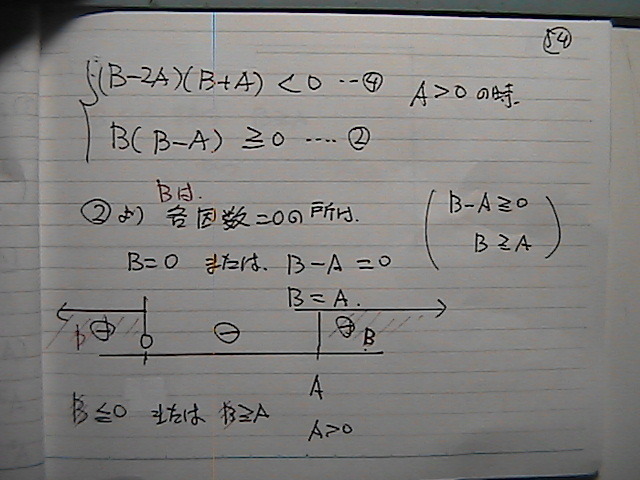 54
(B-2A)(B+A) < 0 …④ A>0の時.
B(B-A) ≧ 0 ….②
Bは.
②より 各因数=0の所は.
B-A≧0
B≧A
B=0 または. B-A=0
B=A.
⊕ 0 ⊖ ⊕ B
A
B≦0 または B≧A
A>0